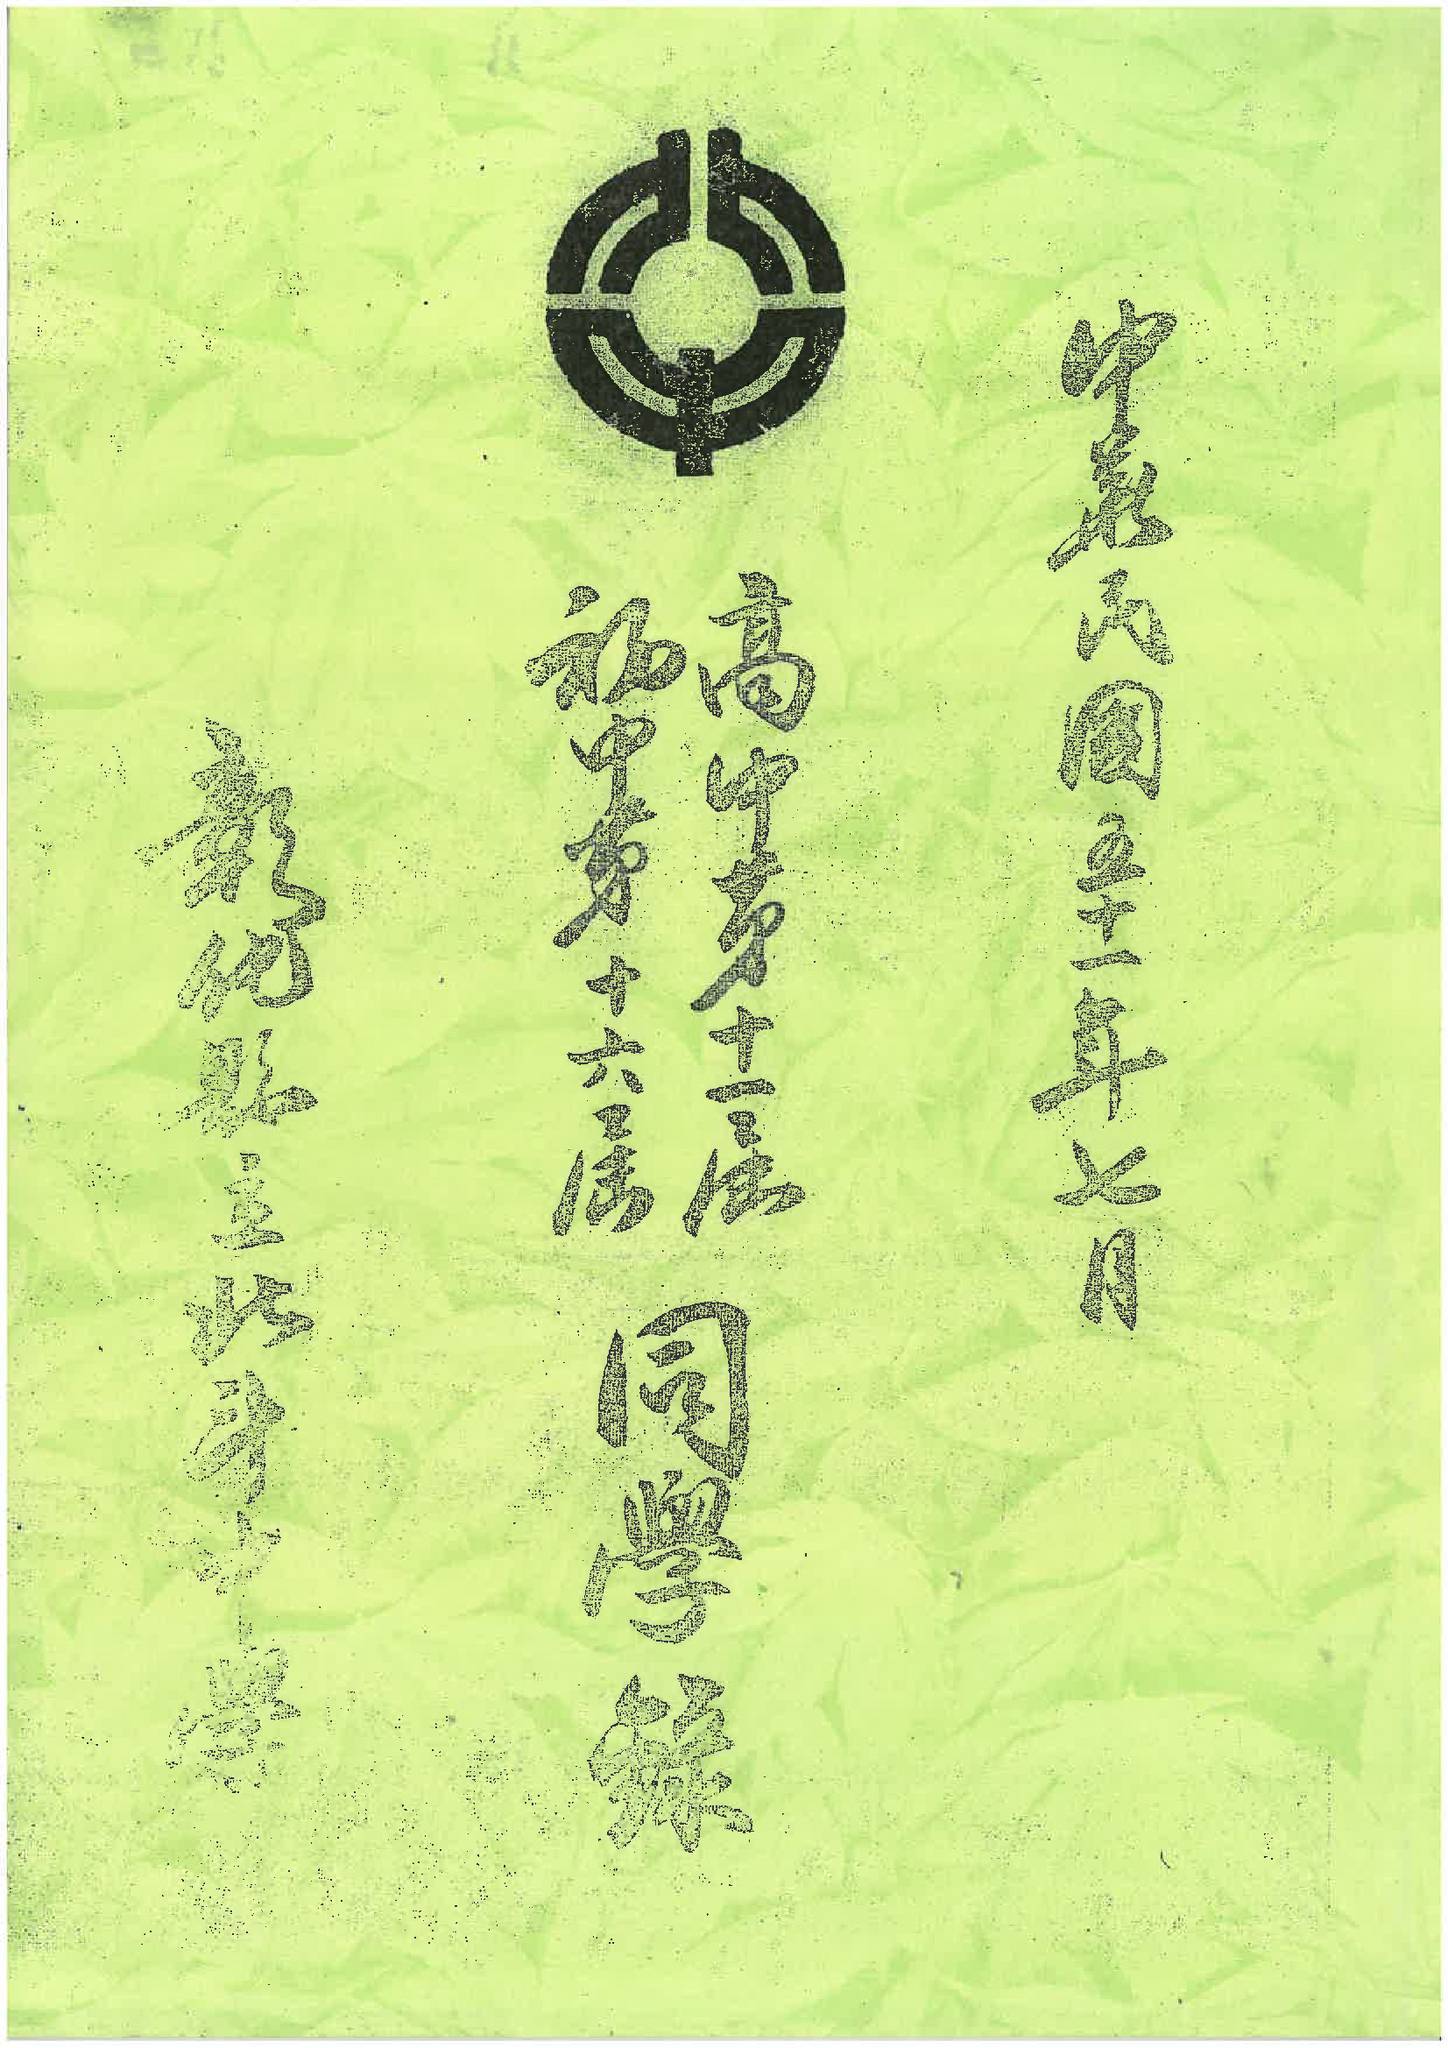 中華民國五十一年七月
高中第十一屆
初中第十六屆
同學錄
彰化縣立北斗中學